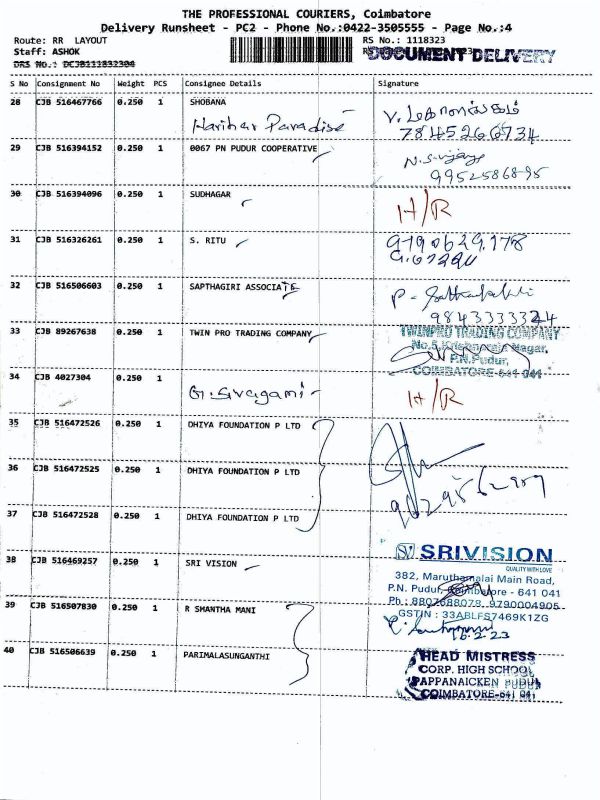 THE PROFESSIONAL COURIERS, Coimbatore
Delivery Runsheet - PC2 - Phone No.:0422-3505555 - Page No.:4
Route: RR LAYOUT RS No.: 1118323
Staff: ASHOK DOCUMENT DELIVERY
DRS No.: DCJB111832304
S No Consignment No Weight PCS Consignee Details Signature
28 CJB 516467766 0.250 1 SHOBANA
Harihar Paradise
7845266734
29 CJB 516394152 0.250 1 0067 PN PUDUR COOPERATIVE
9952586895
30 CJB 516394096 0.250 1 SUDHAGAR
H/R
31 CJB 516326261 0.250 1 S. RITU
9790629178
32 CJB 516506603 0.250 1 SAPTHAGIRI ASSOCIATE
9843333324
33 CJB 89267638 0.250 1 TWIN PRO TRADING COMPANY
TWINPRO TRADING COMPANY
No.5, Krishnaraja Nagar,
P.N.Pudur,
COIMBATORE-641 041
34 CJB 4027304 0.250 1
G. Sivagami
H/R
35 CJB 516472526 0.250 1 DHIYA FOUNDATION P LTD
36 CJB 516472525 0.250 1 DHIYA FOUNDATION P LTD
37 CJB 516472528 0.250 1 DHIYA FOUNDATION P LTD
38 CJB 516469257 0.250 1 SRI VISION
SV SRIVISION
QUALITY WITH LOVE
382, Maruthamalai Main Road,
P.N. Pudur, Coimbatore - 641 041
Ph : 8807688079, 9790004905
GSTIN : 33ABLFS7469K1ZG
39 CJB 516507830 0.250 1 R SMANTHA MANI
16.2.23
40 CJB 516506639 0.250 1 PARIMALASUNGANTHI
HEAD MISTRESS
CORP. HIGH SCHOOL
PAPPANAICKEN PUDUR
COIMBATORE-641 041